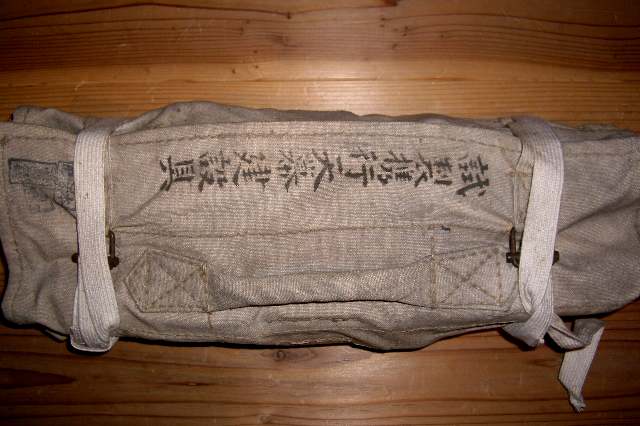 試製携行天幕建設具